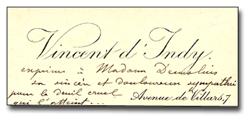 Vincent d'Indy
exprime à Madame
son sincère et douloureuse sympathie
pour le deuil cruel
qui l'atteint...
Avenue de Villars, 7